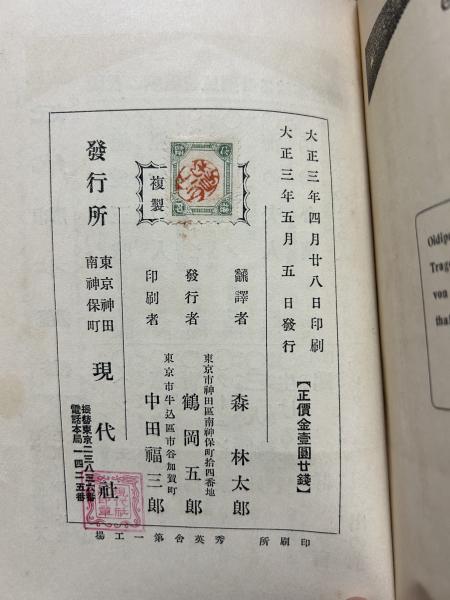 大正三年四月廿八日印刷
大正三年五月五日發行
【正價金壹圓廿錢】
複製
飜譯者 森林太郎
東京市神田區南神保町拾四番地
發行者 鶴岡五郎
東京市牛込區市谷加賀町
印刷者 中田福三郎
發行所 東京神田南神保町 現代社
振替東京二三八三六番
電話本局一四二五番
印刷所 秀英舍第一工場
Oidipo
Trag
von
that